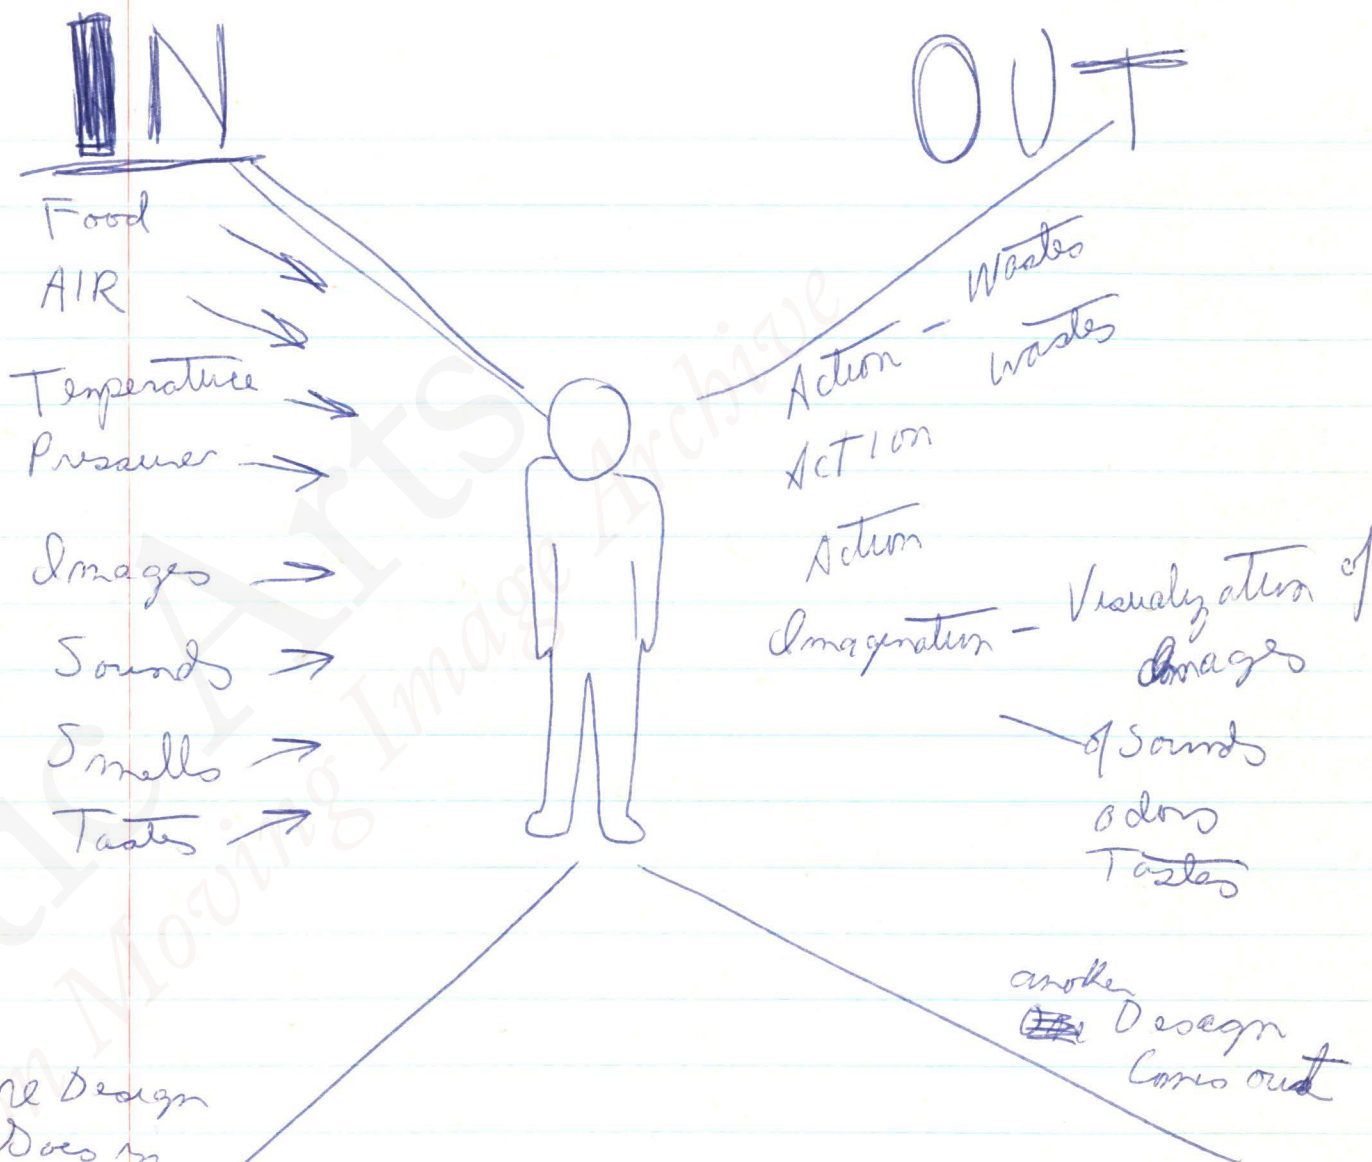 IN
Food
AIR
Temperature
Pressures
Images
Sounds
Smells
Tastes
Design
Goes in
OUT
Action - Wastes
wastes
ACTION
Action
Imagination - Visualization of
Images
of Sounds
odors
Tastes
another
Design
Comes out
Arts
Moving Image Archive